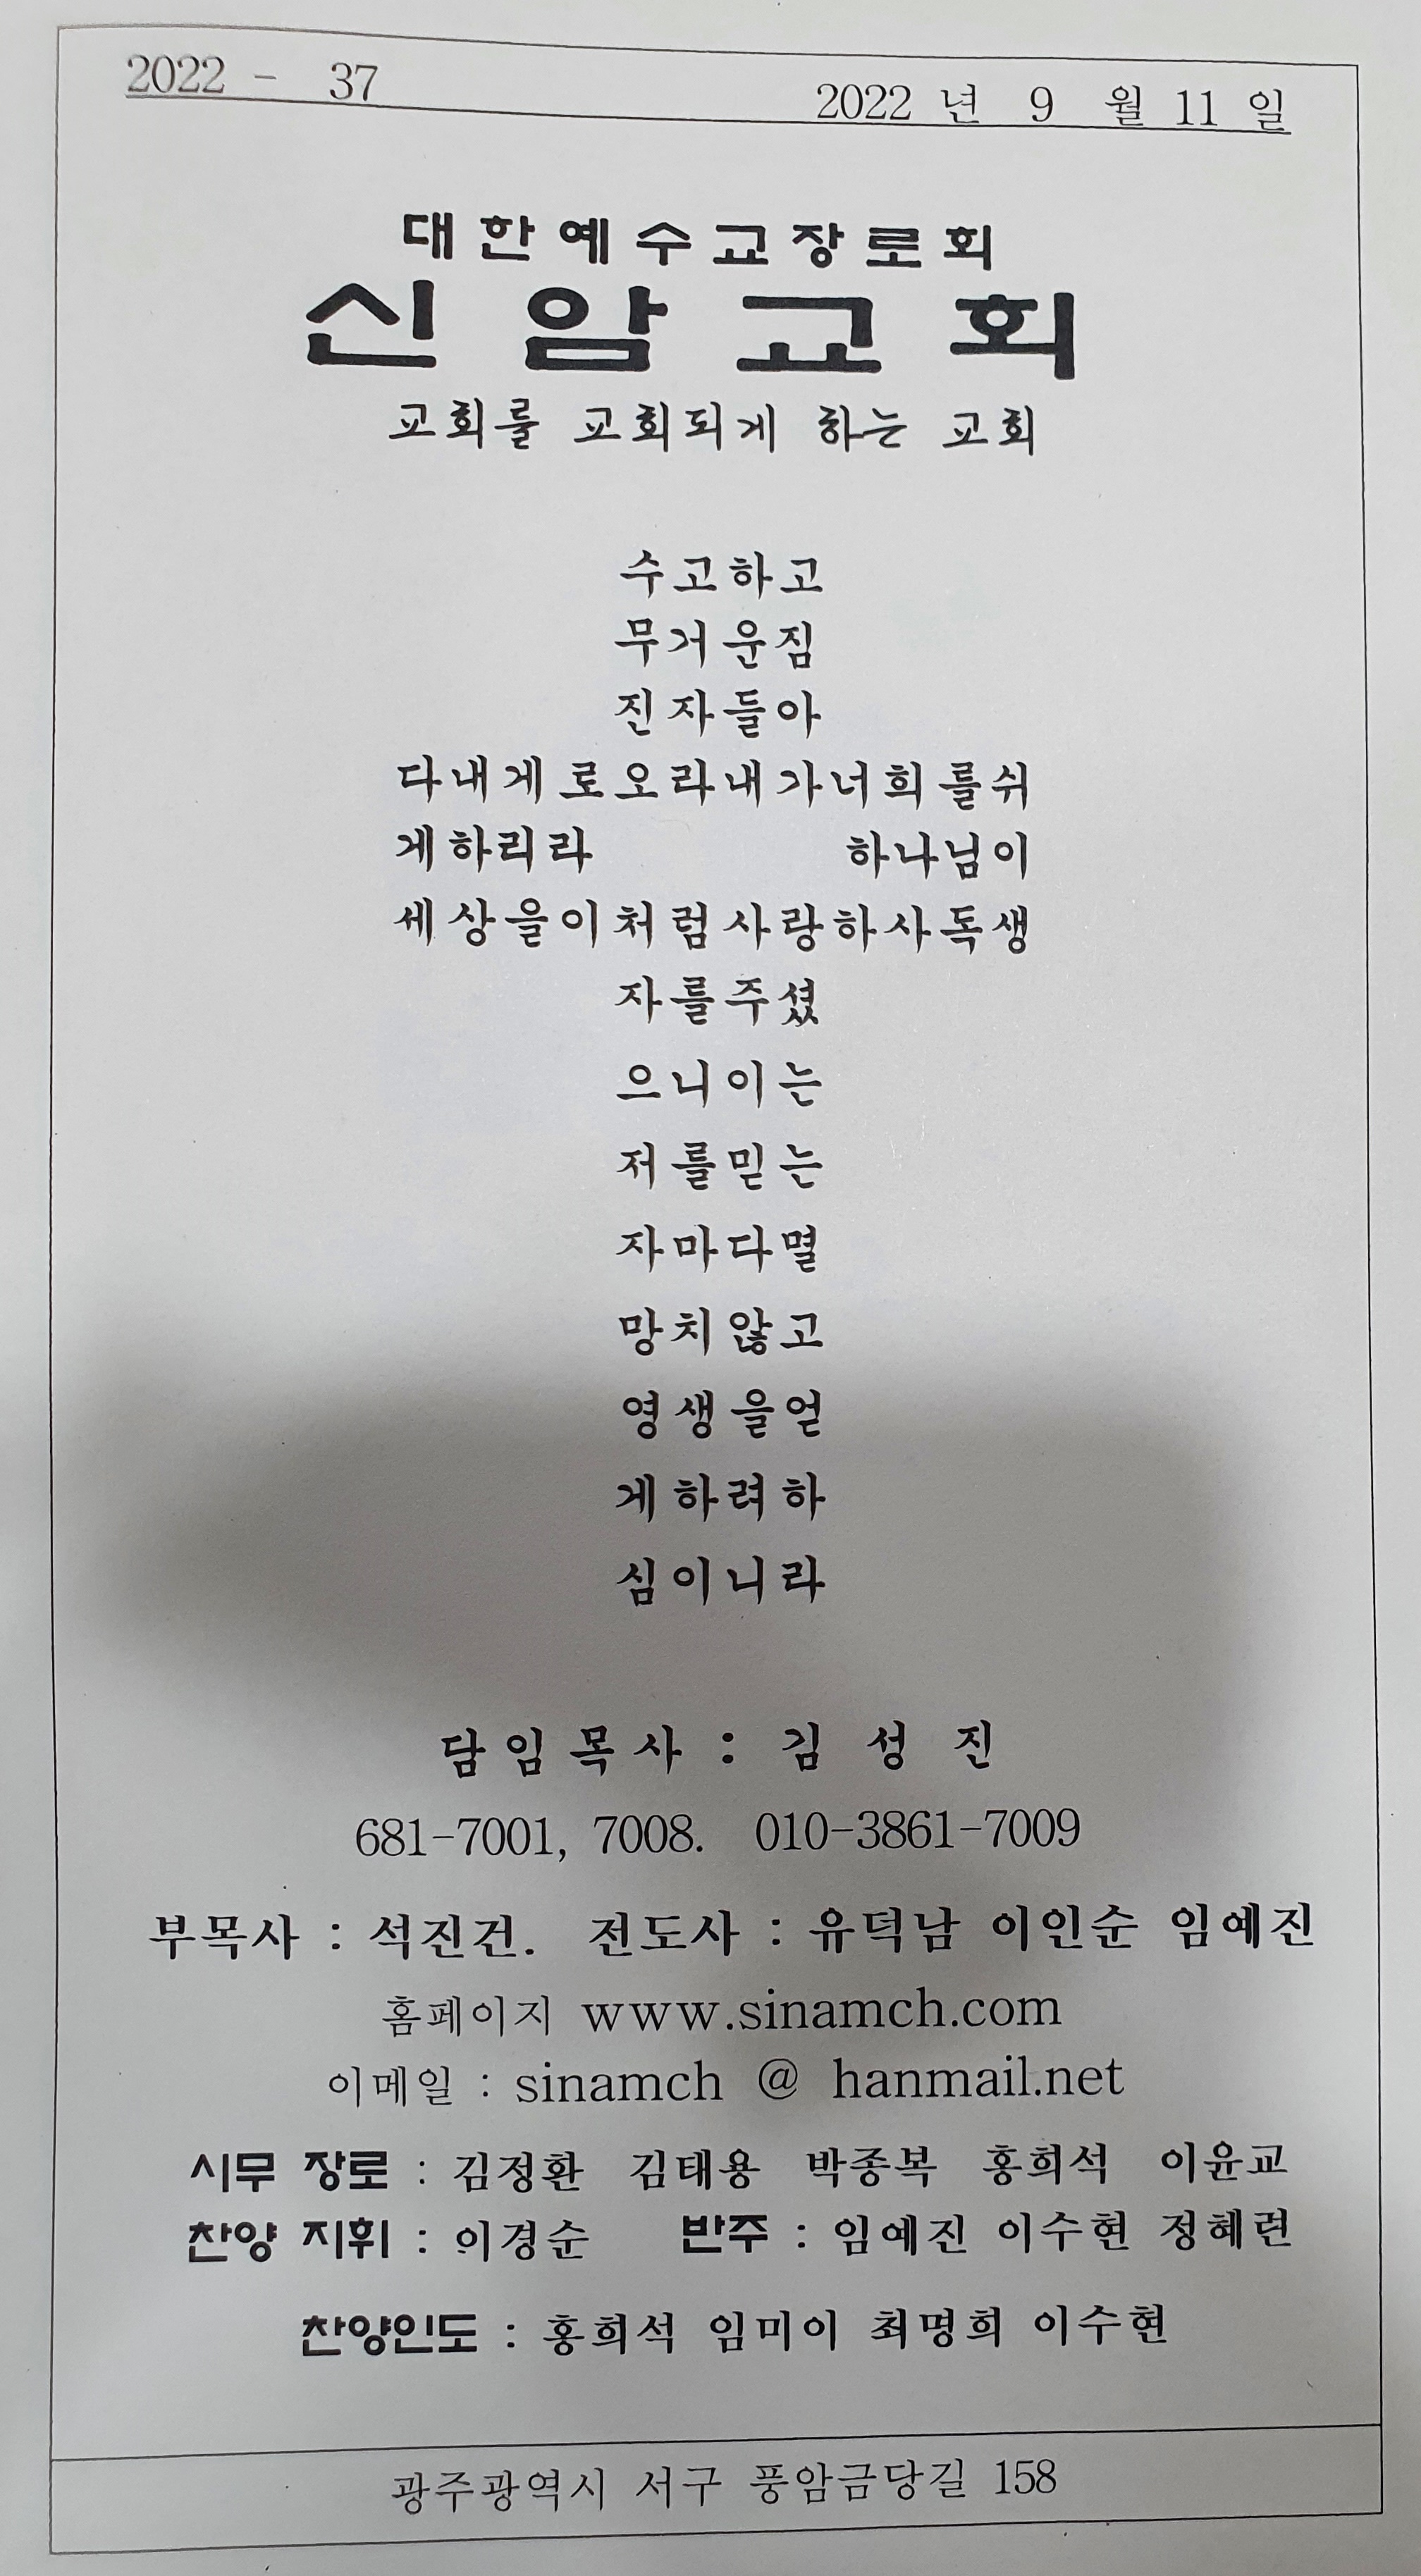 2022 - 37
2022 년 9 월 11 일
대한예수교장로회
신암교회
교회를 교회되게 하는 교회
수고하고
무거운짐
진자들아
다내게로오라내가너희를쉬
게하리라 하나님이
세상을이처럼사랑하사독생
자를주셨
으니이는
저를믿는
자마다멸
망치않고
영생을얻
게하려하
심이니라
담임목사 : 김 성 진
681-7001, 7008. 010-3861-7009
부목사 : 석진건. 전도사 : 유덕남 이인순 임예진
홈페이지 www.sinamch.com
이메일 : sinamch @ hanmail.net
시무 장로 : 김정환 김태용 박종복 홍희석 이윤교
찬양 지휘 : 이경순 반주 : 임예진 이수현 정혜련
찬양인도 : 홍희석 임미이 최명희 이수현
광주광역시 서구 풍암금당길 158